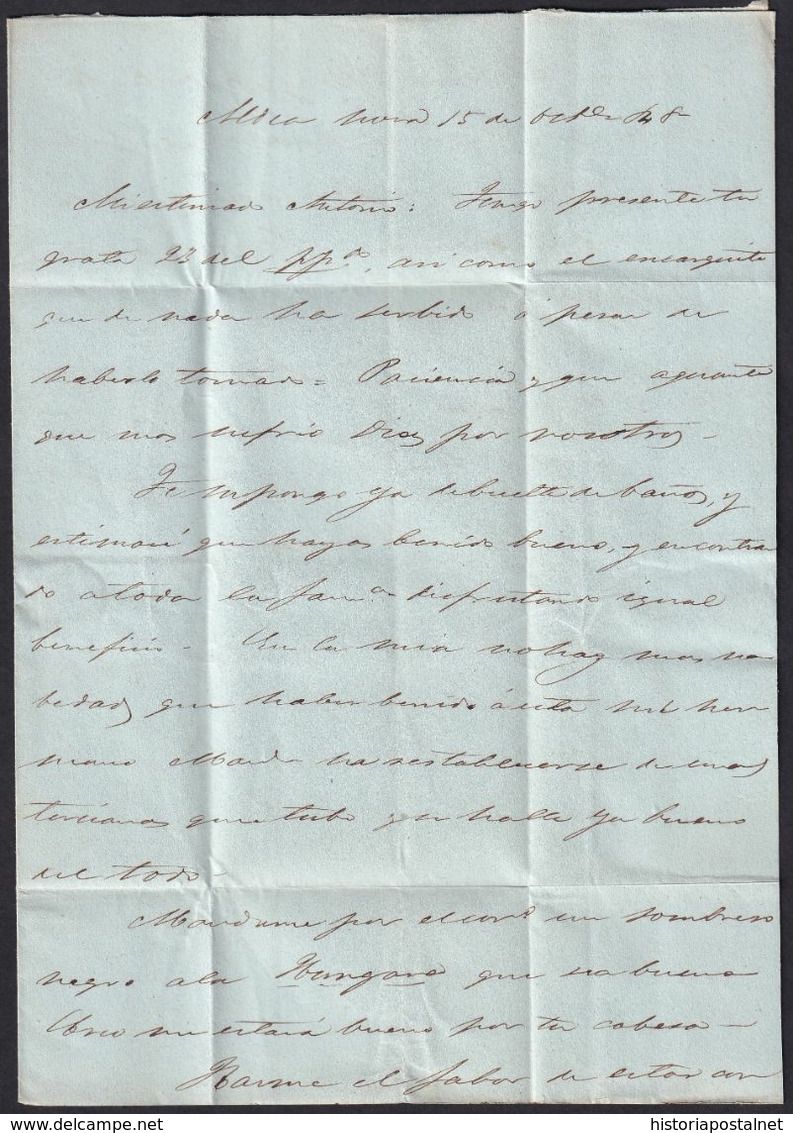 15 de Octe 48
Mi estimado Antonio: Tengo presente tu
grata 22 del pp.do, asi como el encarguito
que de nada ha serbido á pesar de
haberlo tomado = Paciencia y que aguante
que mas sufrió Dios por nosotros –
Te supongo ya de buelta de baños, y
estimaré que hayas benido bueno, y encontran
do a toda la fama disfrutando igual
beneficio – En la mia no hay mas no
bedad, que haber benido á esta mi her
mano a restablecerse de unas
tercianas que tubo y se halla ya bueno
del todo –
Mandame por el un sombrero
negro a la Hungara que sea bueno
Creo me estará bueno por tu cabesa –
Hasme el fabor de estar con
historiapostalnet